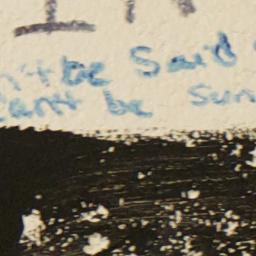 I
n't be Said
can't be Sun